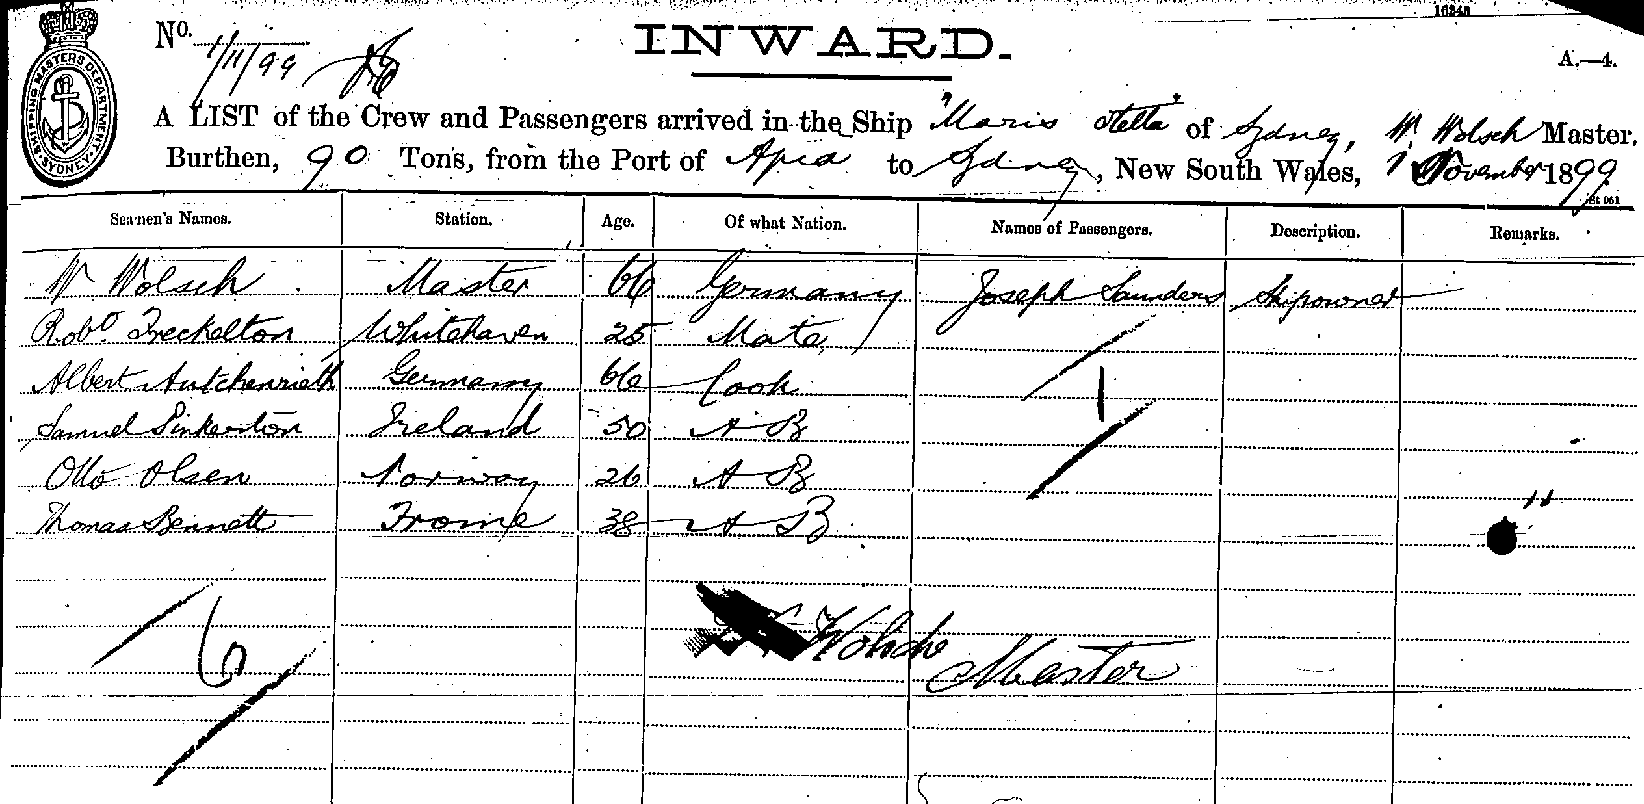 16248
No. 1/11/99
INWARD.
A.—4.
SHIPPING MASTERS DEPARTMENT SYDNEY
A LIST of the Crew and Passengers arrived in the Ship "Maris Stella" of Sydney, W. Wolsch Master.
Burthen, 90 Tons, from the Port of Apia to Sydney, New South Wales, 1 November 1899
Seamen's Names. Station. Age. Of what Nation. Names of Passengers. Description. Remarks.
W Wolsch Master 66 Germany Joseph Saunders Shipowner
Robt. Freckelton Whitehaven 25 Mate
Albert Autchenrieth Germany 66 Cook
Samuel Pinkerton Ireland 50 A B 1
Otto Olsen Norway 26 A B
Thomas Bennett Frome 38 A B
6
Master